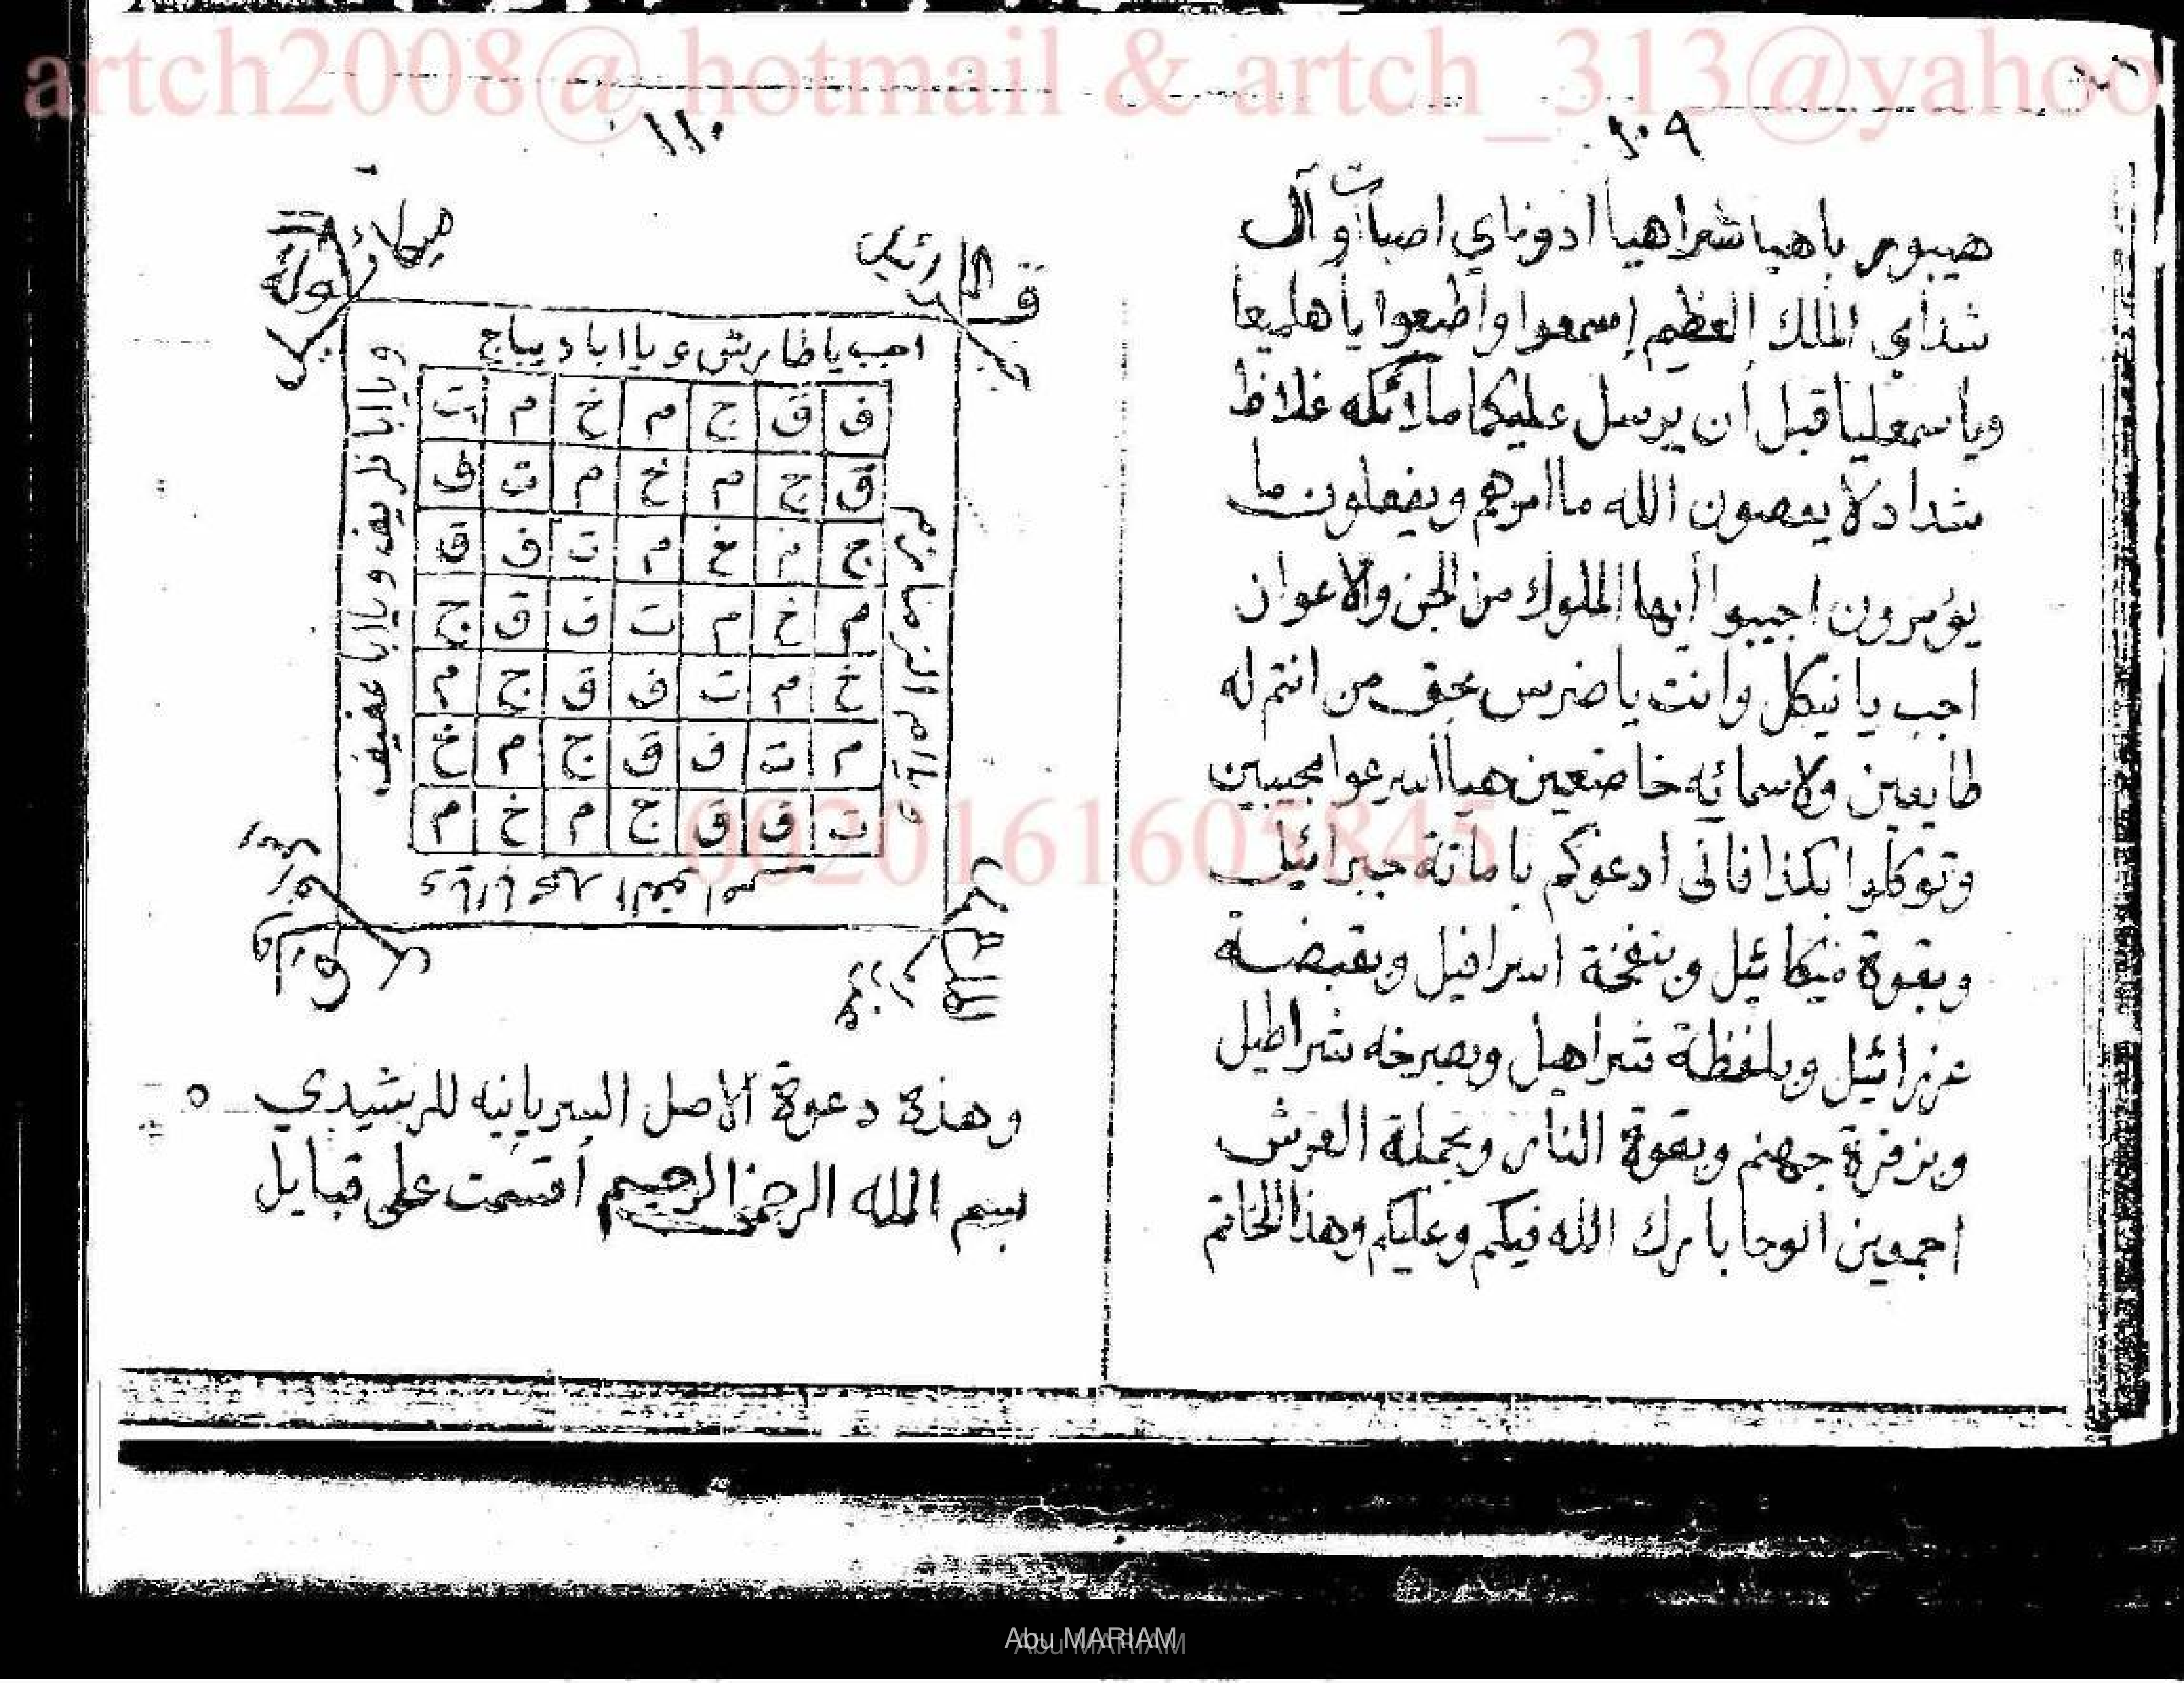 artch2008@ hotmail & artch_313@yahoo
١٠٩
هيبوم باهيا شراهيا ادوناي اصباوت آل
شداي الملك العظيم إسمعوا واطيعوا يا هلميعا
ويا سمعليا قبل أن يرسل عليكما ملائكه غلاظ
شداد لا يعصون الله ما امرهم ويفعلون ما
يؤمرون اجيبوا أيها الملوك من الجن والاعوان
اجب يا نيكل وانت يا ضريس بحق من انتم له
طايعين ولاسمائه خاضعين هيا اسرعوا مجيبين
وتوكلوا بكذا فانى ادعوكم بامانة جبرائيل
وبقوة ميكائيل وبنفخة اسرافيل وبقبضة
عزرائيل وبلفظة شراهيل وبصرخه شراطيل
وبزفرة جهنم وبقوة النار وبحملة العرش
اجمعين الوحا بارك الله فيكم وعليكم وهذا الخاتم
١١٠
اجب يا طارش ويا ابا ديباج
ويا ابا ظريف ويا ابا عفيف
ف ق ج م خ م ت
ق ج م خ م ت ف
ج م خ م ت ف ق
م خ م ت ف ق ج
خ م ت ف ق ج م
م ت ف ق ج م خ
ت ف ق ج م خ م
وهذه دعوة الاصل السريانيه للرشيدي
بسم الله الرحمن الرحيم أقسمت على قبايل
00201616053845
Abu MARIAM